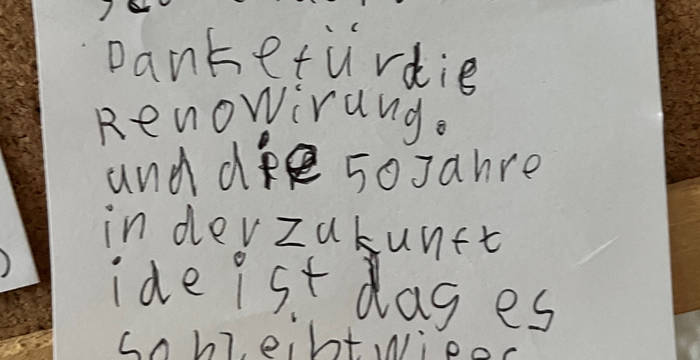 Danke für die
Renowirung.
und die 50 Jahre
in der zukunft
ide ist das es
so bleibt wie es